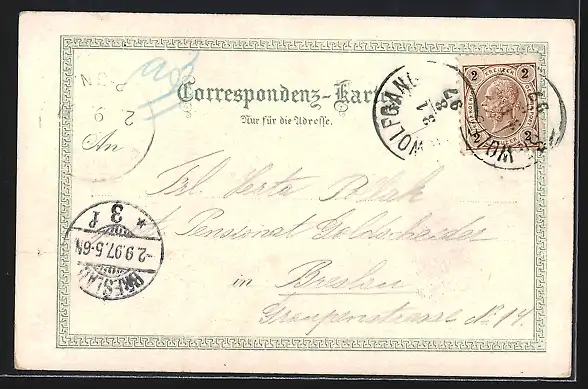 Correspondenz-Karte
Nur für die Adresse.
2 KREUZER 2
2 2
WOLFGANG
31 8 97
Frl. Herta
Pensionat Goldscheider
in Breslau
Graupenstrasse No 14.
BRESLAU
-2.9.97.5-6N
* 3 f
2 9
An